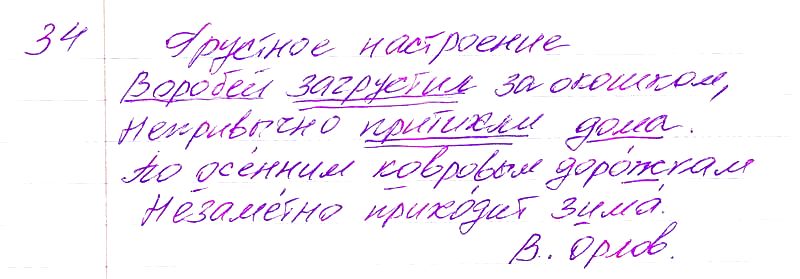 34 Грустное настроение
Воробей загрустил за окошком,
Непривычно притихли дома.
По осе́нним ковровым доро́жкам
Незаме́тно прихо́дит зима́.
В. Орлов.